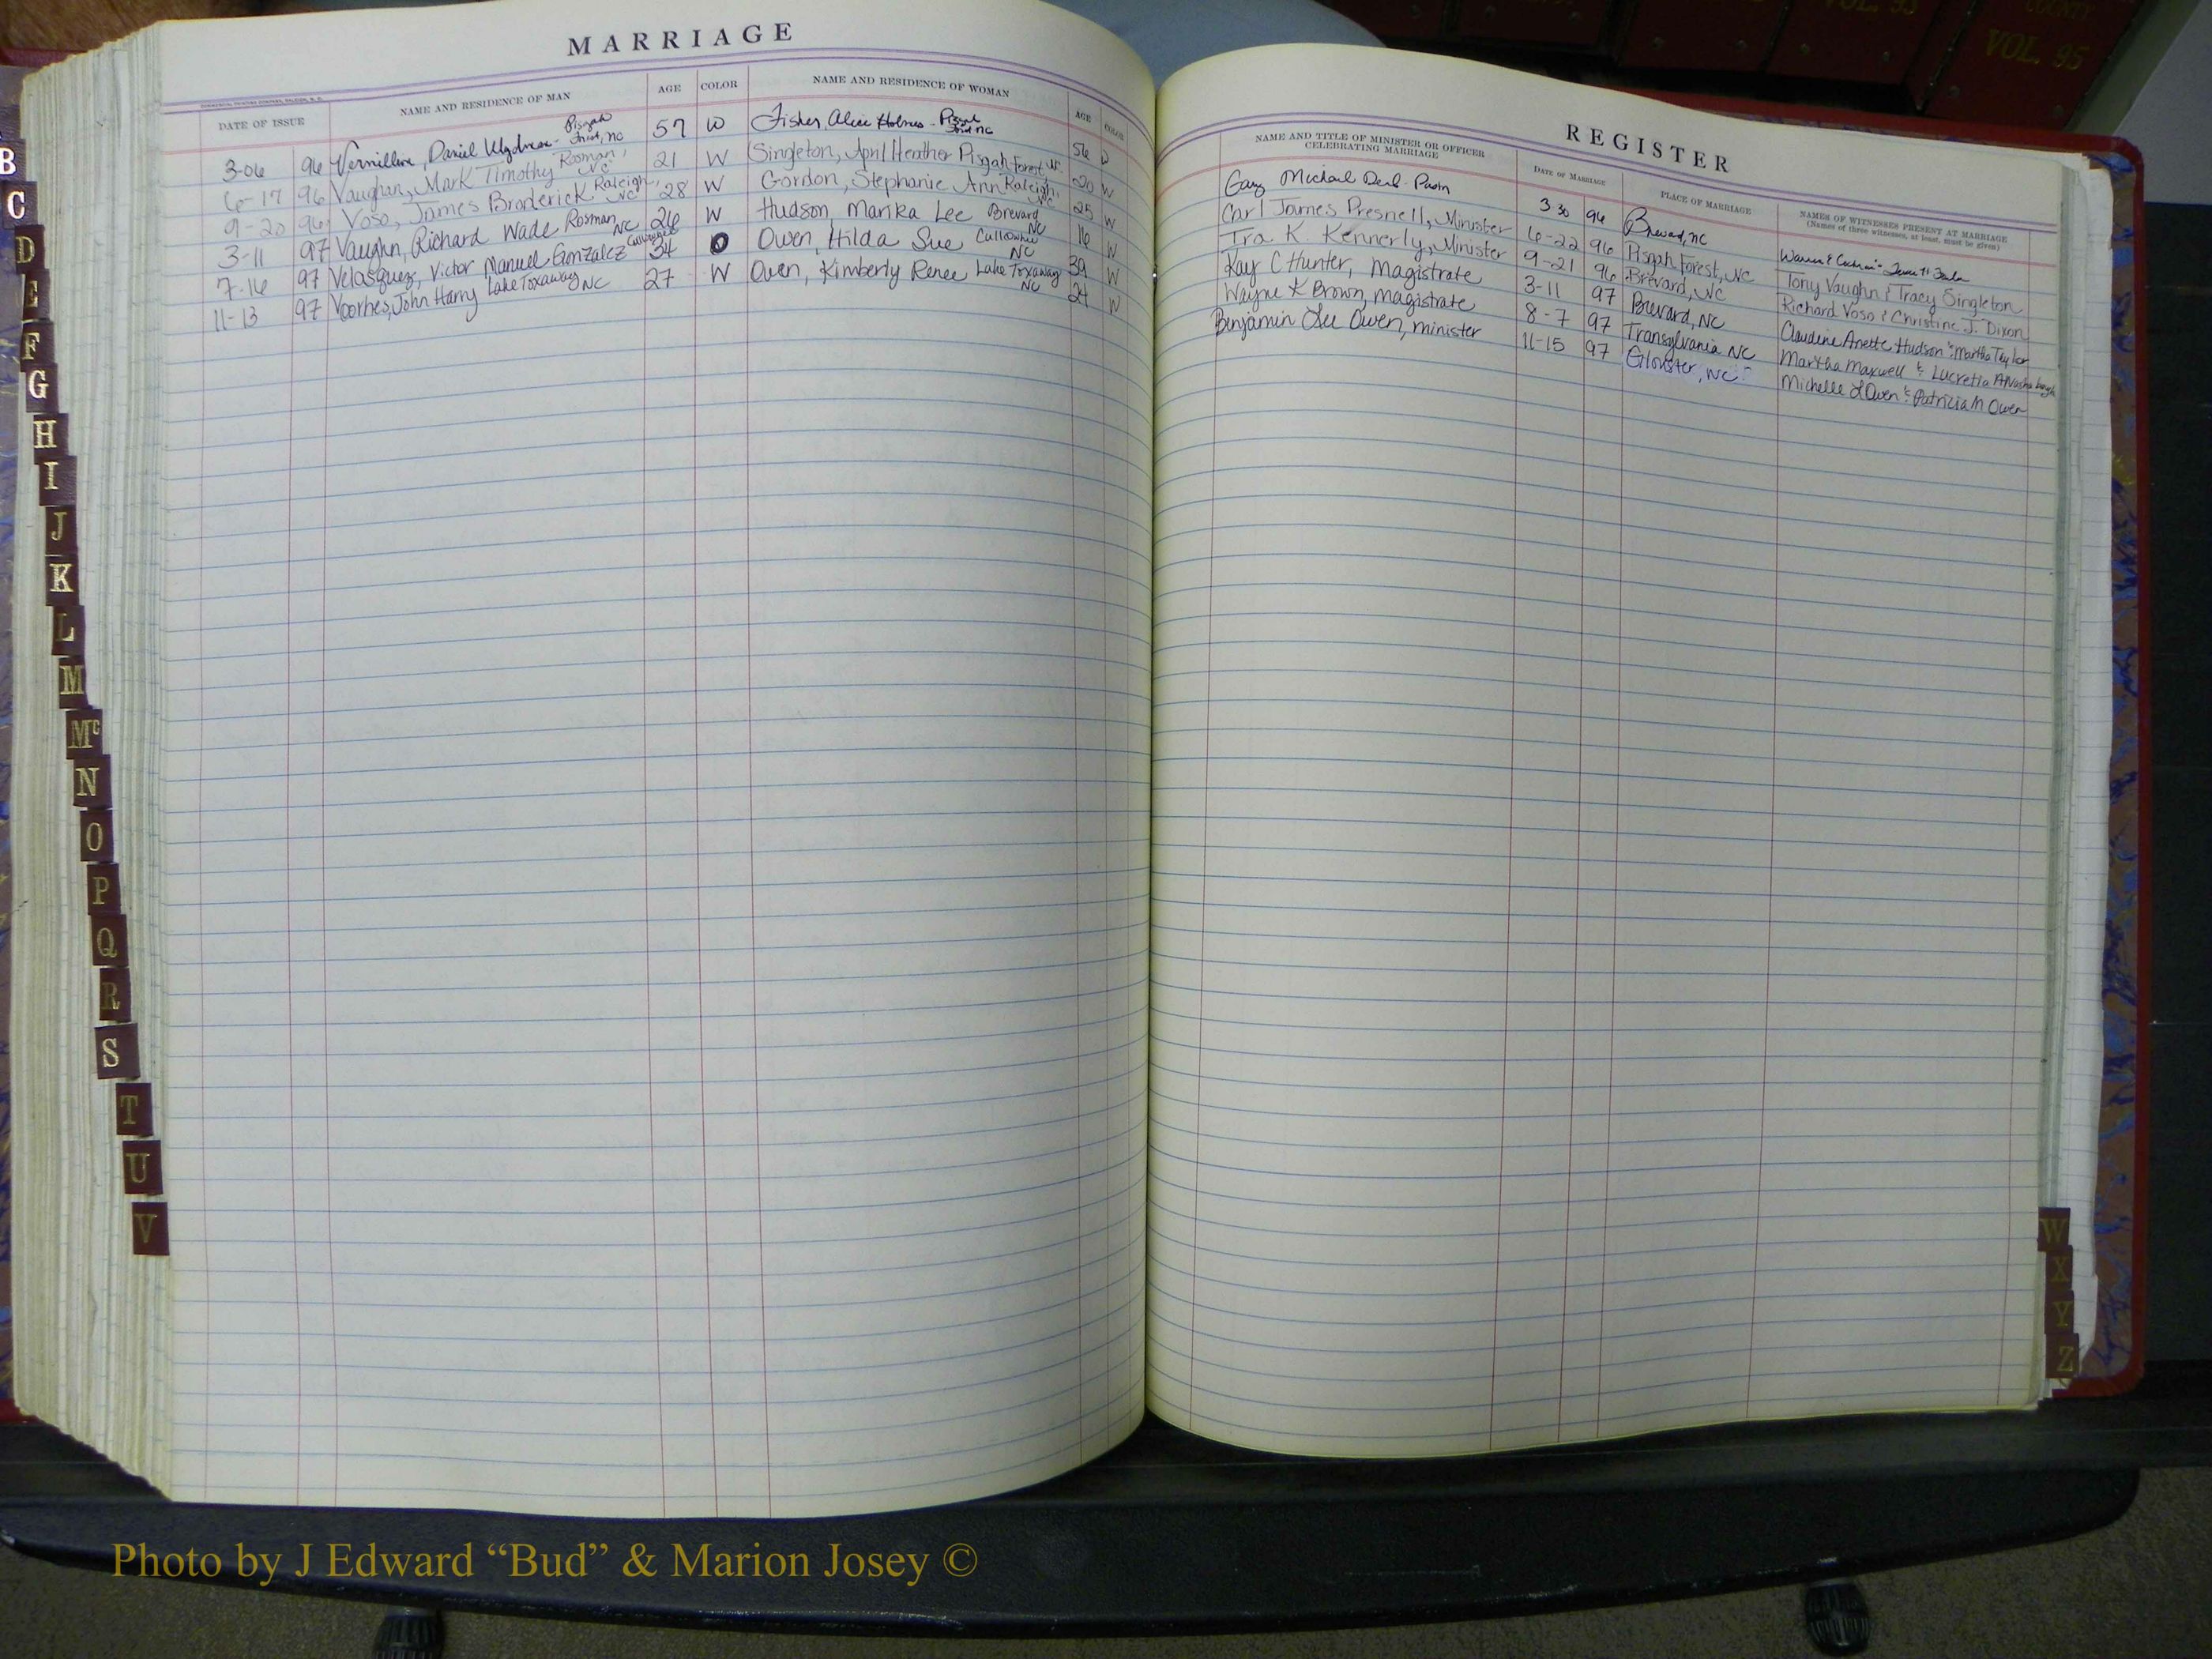 MARRIAGE
DATE OF ISSUE NAME AND RESIDENCE OF MAN AGE COLOR NAME AND RESIDENCE OF WOMAN AGE COLOR
3-06 96 Vermillion, Daniel - Pisgah Forest, NC 57 W Fisher, Alice Holmes - Pisgah Forest NC 56 W
6-17 96 Vaughan, Mark Timothy Rosman, NC 21 W Singleton, April Heather Pisgah Forest, NC 20 W
9-20 96 Voso, James Broderick Raleigh, NC 28 W Gordon, Stephanie Ann Raleigh, NC 25 W
3-11 97 Vaughn, Richard Wade Rosman NC 26 W Hudson, Marika Lee Brevard NC 16 W
7-16 97 Velasquez, Victor Manuel Gonzalez Cullowhee 34 O Owen, Hilda Sue Cullowhee NC 39 W
11-13 97 Voorhes, John Harry Lake Toxaway NC 27 W Owen, Kimberly Renee Lake Toxaway NC 24 W
REGISTER
NAME AND TITLE OF MINISTER OR OFFICER CELEBRATING MARRIAGE DATE OF MARRIAGE PLACE OF MARRIAGE NAMES OF WITNESSES PRESENT AT MARRIAGE
(Names of three witnesses, at least, must be given)
Gary Michael - Pastor 3 30 96 Brevard, NC
Carl James Presnell, Minister 6-22 96 Pisgah Forest, NC Tony Vaughn & Tracy Singleton
Ira K Kennerly, Minister 9-21 96 Brevard, NC Richard Voso & Christine J. Dixon
Kay C Hunter, Magistrate 3-11 97 Brevard, NC Claudine Anette Hudson & Martha Taylor
Wayne K Brown, magistrate 8-7 97 Transylvania NC Martha Maxwell & Lucretia
Benjamin Lee Owen, minister 11-15 97 Glouster, NC Michelle L Owen & Patricia M Owen
B
C
D
E
F
G
H
I
J
K
L
M
Mc
N
O
P
Q
R
S
T
U
V
W
X
Y
Z
VOL. 93
COUNTY
VOL. 95
Photo by J Edward “Bud” & Marion Josey ©